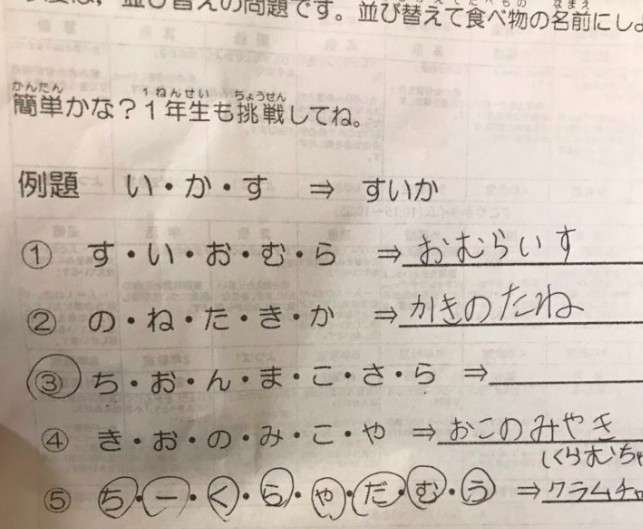 並び替えの問題です。並び替えて食べ物の名前にしよ
簡単かな？１年生も挑戦してね。
例題 い・か・す ⇒ すいか
① す・い・お・む・ら ⇒ おむらいす
② の・ね・た・き・か ⇒ かきのたね
③ ち・お・ん・ま・こ・さ・ら ⇒
④ き・お・の・み・こ・や ⇒ おこのみやき
くらむちゃ
⑤ ち・ー・く・ら・や・だ・む・う ⇒ クラムチャ